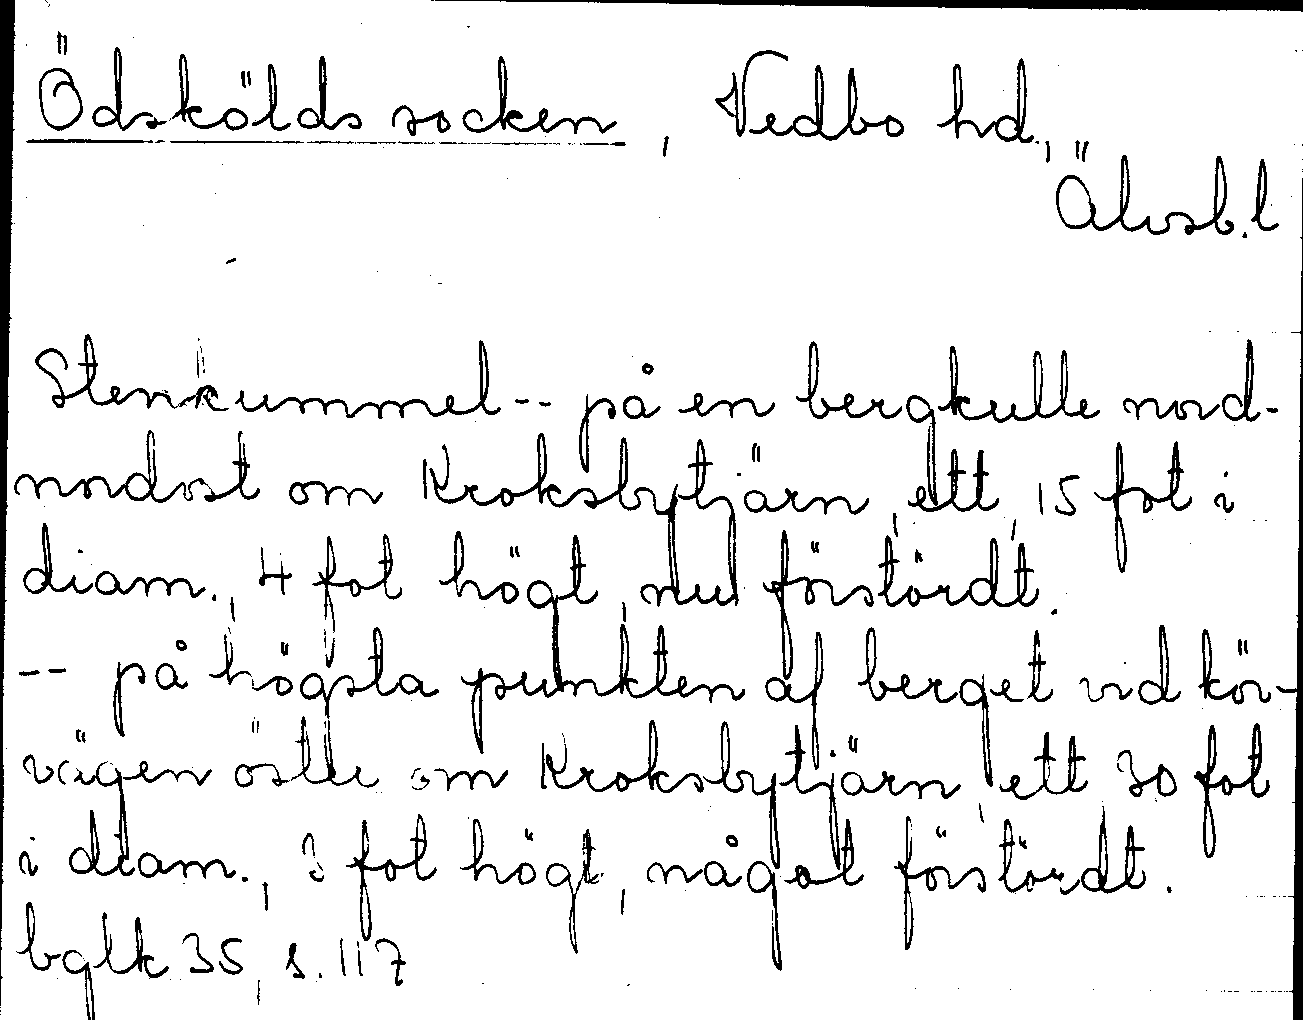 Ödskölds socken, Vedbo hd.,
Älvsb.l
Stenkummel -- på en bergkulle nord-
nordost om Kroksbytjärn, ett, 15 fot i
diam., 4 fot högt, nu förstördt.
-- på högsta punkten af berget vid kör-
vägen öster om Kroksbytjärn, ett 30 fot
i diam., 3 fot högt, något förstördt.
bglk 35, s. 117